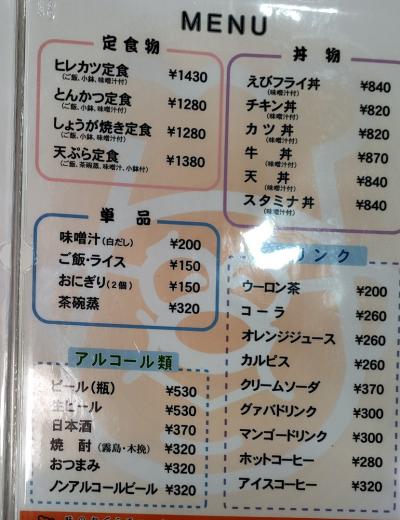 MENU
定食物
ヒレカツ定食 ¥1430
(ご飯、小鉢、味噌汁付)
とんかつ定食 ¥1280
(ご飯、小鉢、味噌汁付)
しょうが焼き定食 ¥1280
(ご飯、小鉢、味噌汁付)
天ぷら定食 ¥1380
(ご飯、茶碗蒸、味噌汁、小鉢付)
丼物
えびフライ丼 ¥840
(味噌汁付)
チキン丼 ¥820
(味噌汁付)
カツ丼 ¥820
(味噌汁付)
牛丼 ¥870
(味噌汁付)
天丼 ¥840
(味噌汁付)
スタミナ丼 ¥840
(味噌汁付)
単品
味噌汁(白だし) ¥200
ご飯・ライス ¥150
おにぎり(2個) ¥150
茶碗蒸 ¥320
リンク
ウーロン茶 ¥200
コーラ ¥260
オレンジジュース ¥260
カルピス ¥260
クリームソーダ ¥370
グァバドリンク ¥300
マンゴードリンク ¥300
ホットコーヒー ¥280
アイスコーヒー ¥320
アルコール類
ビール(瓶) ¥530
生ビール ¥530
日本酒 ¥370
焼酎(霧島・木挽) ¥320
おつまみ ¥320
ノンアルコールビール ¥320